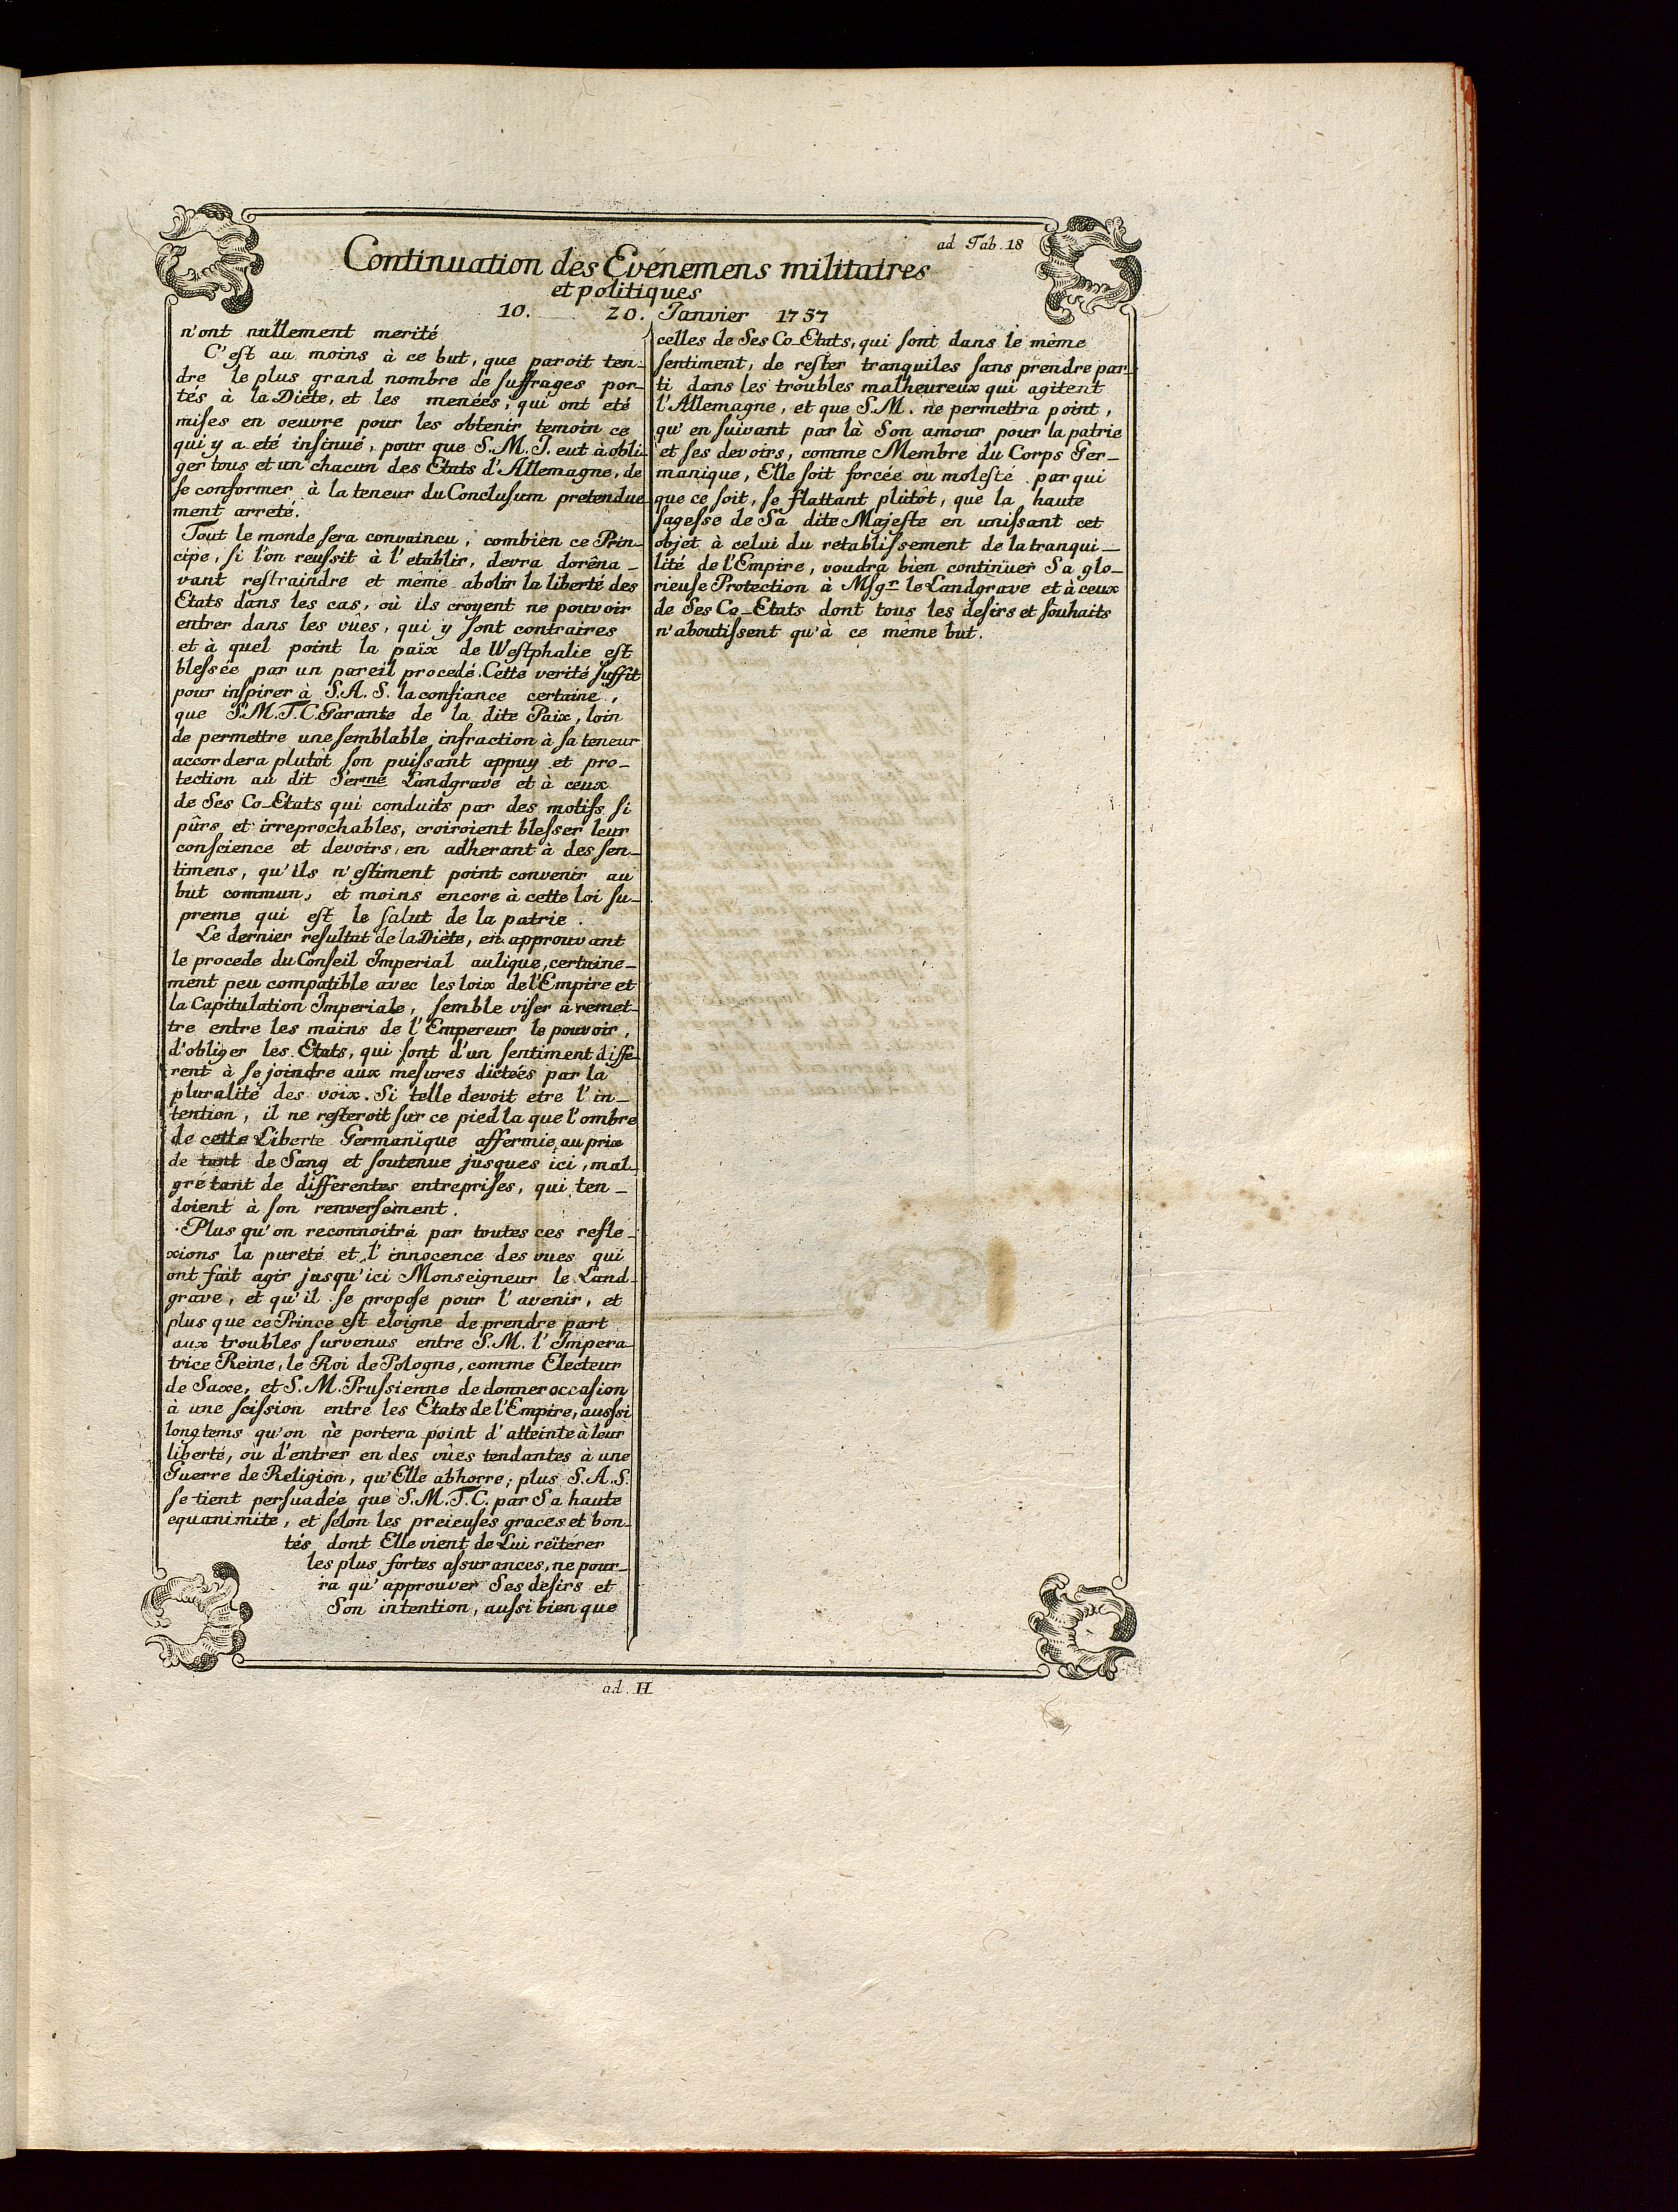 ad Tab. 18
Continuation des Evénemens militaires
et politiques
10. 20. Janvier 1757
n'ont nullement merité
C'eſt au moins à ce but, que paroit ten-
dre le plus grand nombre de ſuffrages por-
tés à la Diéte, et les menées, qui ont eté
miſes en oeuvre pour les obtenir temoin ce
qui y a eté inſinué, pour que S.M.I. eut à obli-
ger tous et un chacun des Etats d'Allemagne, de
ſe conformer à la teneur du Concluſum pretendue-
ment arreté.
Tout le monde ſera convaincu, combien ce Prin-
cipe, ſi l'on reuſsit à l'etablir, devra dorêna-
vant reſtraindre et même abolir la liberté des
Etats dans les cas, où ils croyent ne pouvoir
entrer dans les vûes, qui y ſont contraires
et à quel point la paix de Weſtphalie eſt
bleſsée par un pareil procedé. Cette verité ſuffit
pour inſpirer à S.A.S. la confiance certaine,
que S.M.T.C. Garante de la dite Paix, loin
de permettre une ſemblable infraction à ſa teneur
accordera plutôt ſon puiſsant appuy et pro-
tection au dit Serme Landgrave et à ceux
de Ses Co-Etats qui conduits par des motifs ſi
pûrs et irreprochables, croiroient bleſser leur
conſcience et devoirs, en adherant à des ſen-
timens, qu'ils n'eſtiment point convenir au
but commun, et moins encore à cette loi ſu-
preme qui eſt le ſalut de la patrie.
Le dernier reſultat de la Diéte, en approuvant
le procede du Conſeil Imperial aulique, certaine-
ment peu compatible avec les loix de l'Empire et
la Capitulation Imperiale, ſemble viſer à remet-
tre entre les mains de l'Empereur le pouvoir,
d'obliger les Etats, qui ſont d'un ſentiment diffe-
rent à ſe joindre aux meſures dicteés par la
pluralité des voix. Si telle devoit etre l'in-
tention, il ne reſteroit ſur ce pied la que l'ombre
de cette Liberte Germanique affermie au prix
de tant de Sang et ſoutenue jusques ici, mal-
gré tant de differentes entrepriſes, qui ten-
doient à ſon renverſèment.
Plus qu'on reconnoitra par toutes ces refle-
xions la pureté et l'innocence des vues qui
ont fait agir jusqu'ici Monseigneur le Land-
grave, et qu'il ſe propoſe pour l'avenir, et
plus que ce Prince eſt eloigne de prendre part
aux troubles ſurvenus entre S.M. l'Impera-
trice Reine, le Roi de Pologne, comme Electeur
de Saxe, et S.M. Pruſsienne de donner occaſion
à une ſciſsion entre les Etats de l'Empire, auſsi
longtems qu'on ne portera point d'atteinte à leur
liberté, où d'entrer en des vûes tendantes à une
Guerre de Religion, qu'Elle abhorre; plus S.A.S.
ſe tient perſuadée que S.M.T.C. par Sa haute
equanimité, et ſelon les preieuſes graces et bon-
tés dont Elle vient de Lui reïtérer
les plus fortes aſsurances, ne pour-
ra qu'approuver Ses deſirs et
Son intention, auſsi bien que
celles de Ses Co-Etats, qui ſont dans le même
ſentiment, de reſter tranquiles ſans prendre par-
ti dans les troubles malheureux qui agitent
l'Allemagne, et que S.M. ne permettra point,
qu'en ſuivant par là Son amour pour la patrie
et ſes devoirs, comme Membre du Corps Ger-
manique, Elle ſoit forcée ou moleſté par qui
que ce ſoit, ſe flattant plûtôt, que la haute
ſageſse de Sa dite Majeſte en uniſsant cet
objet à celui du retabliſsement de la tranqui-
lité de l'Empire, voudra bien continüer Sa glo-
rieuſe Protection à Mſgr le Landgrave et à ceux
de Ses Co-Etats dont tous les deſirs et ſouhaits
n'aboutiſsent qu'à ce même but.
ad. H